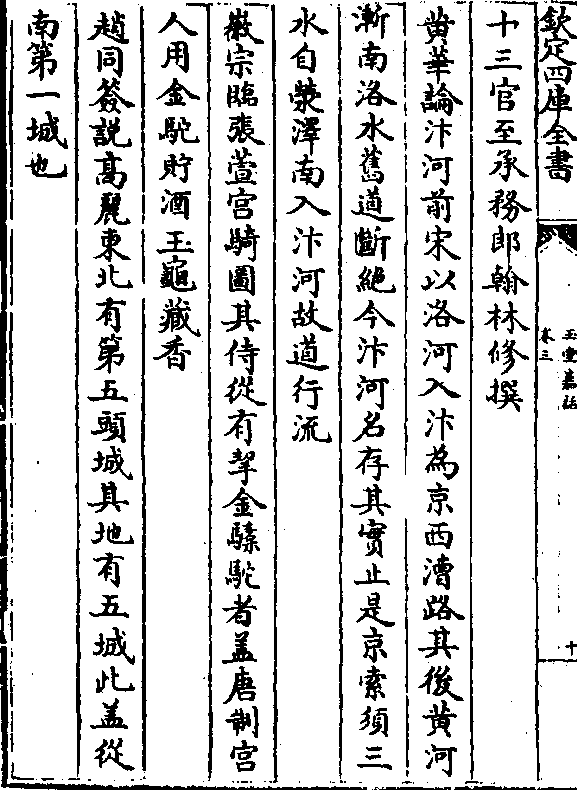 欽定四庫全書
玉堂嘉話
卷三
十
十三官至承務郎翰林修撰
黄華論汴河前宋以洛河入汴為京西漕路其後黄河
漸南洛水舊道斷絕今汴河名存其實止是京索須三
水自滎澤南入汴河故道行流
徽宗臨張萱宮騎圖其侍從有挈金騾駝者蓋唐制宮
人用金駝貯酒玉龜藏香
趙同簽説高麗東北有第五頭城其地有五城此蓋從
南第一城也